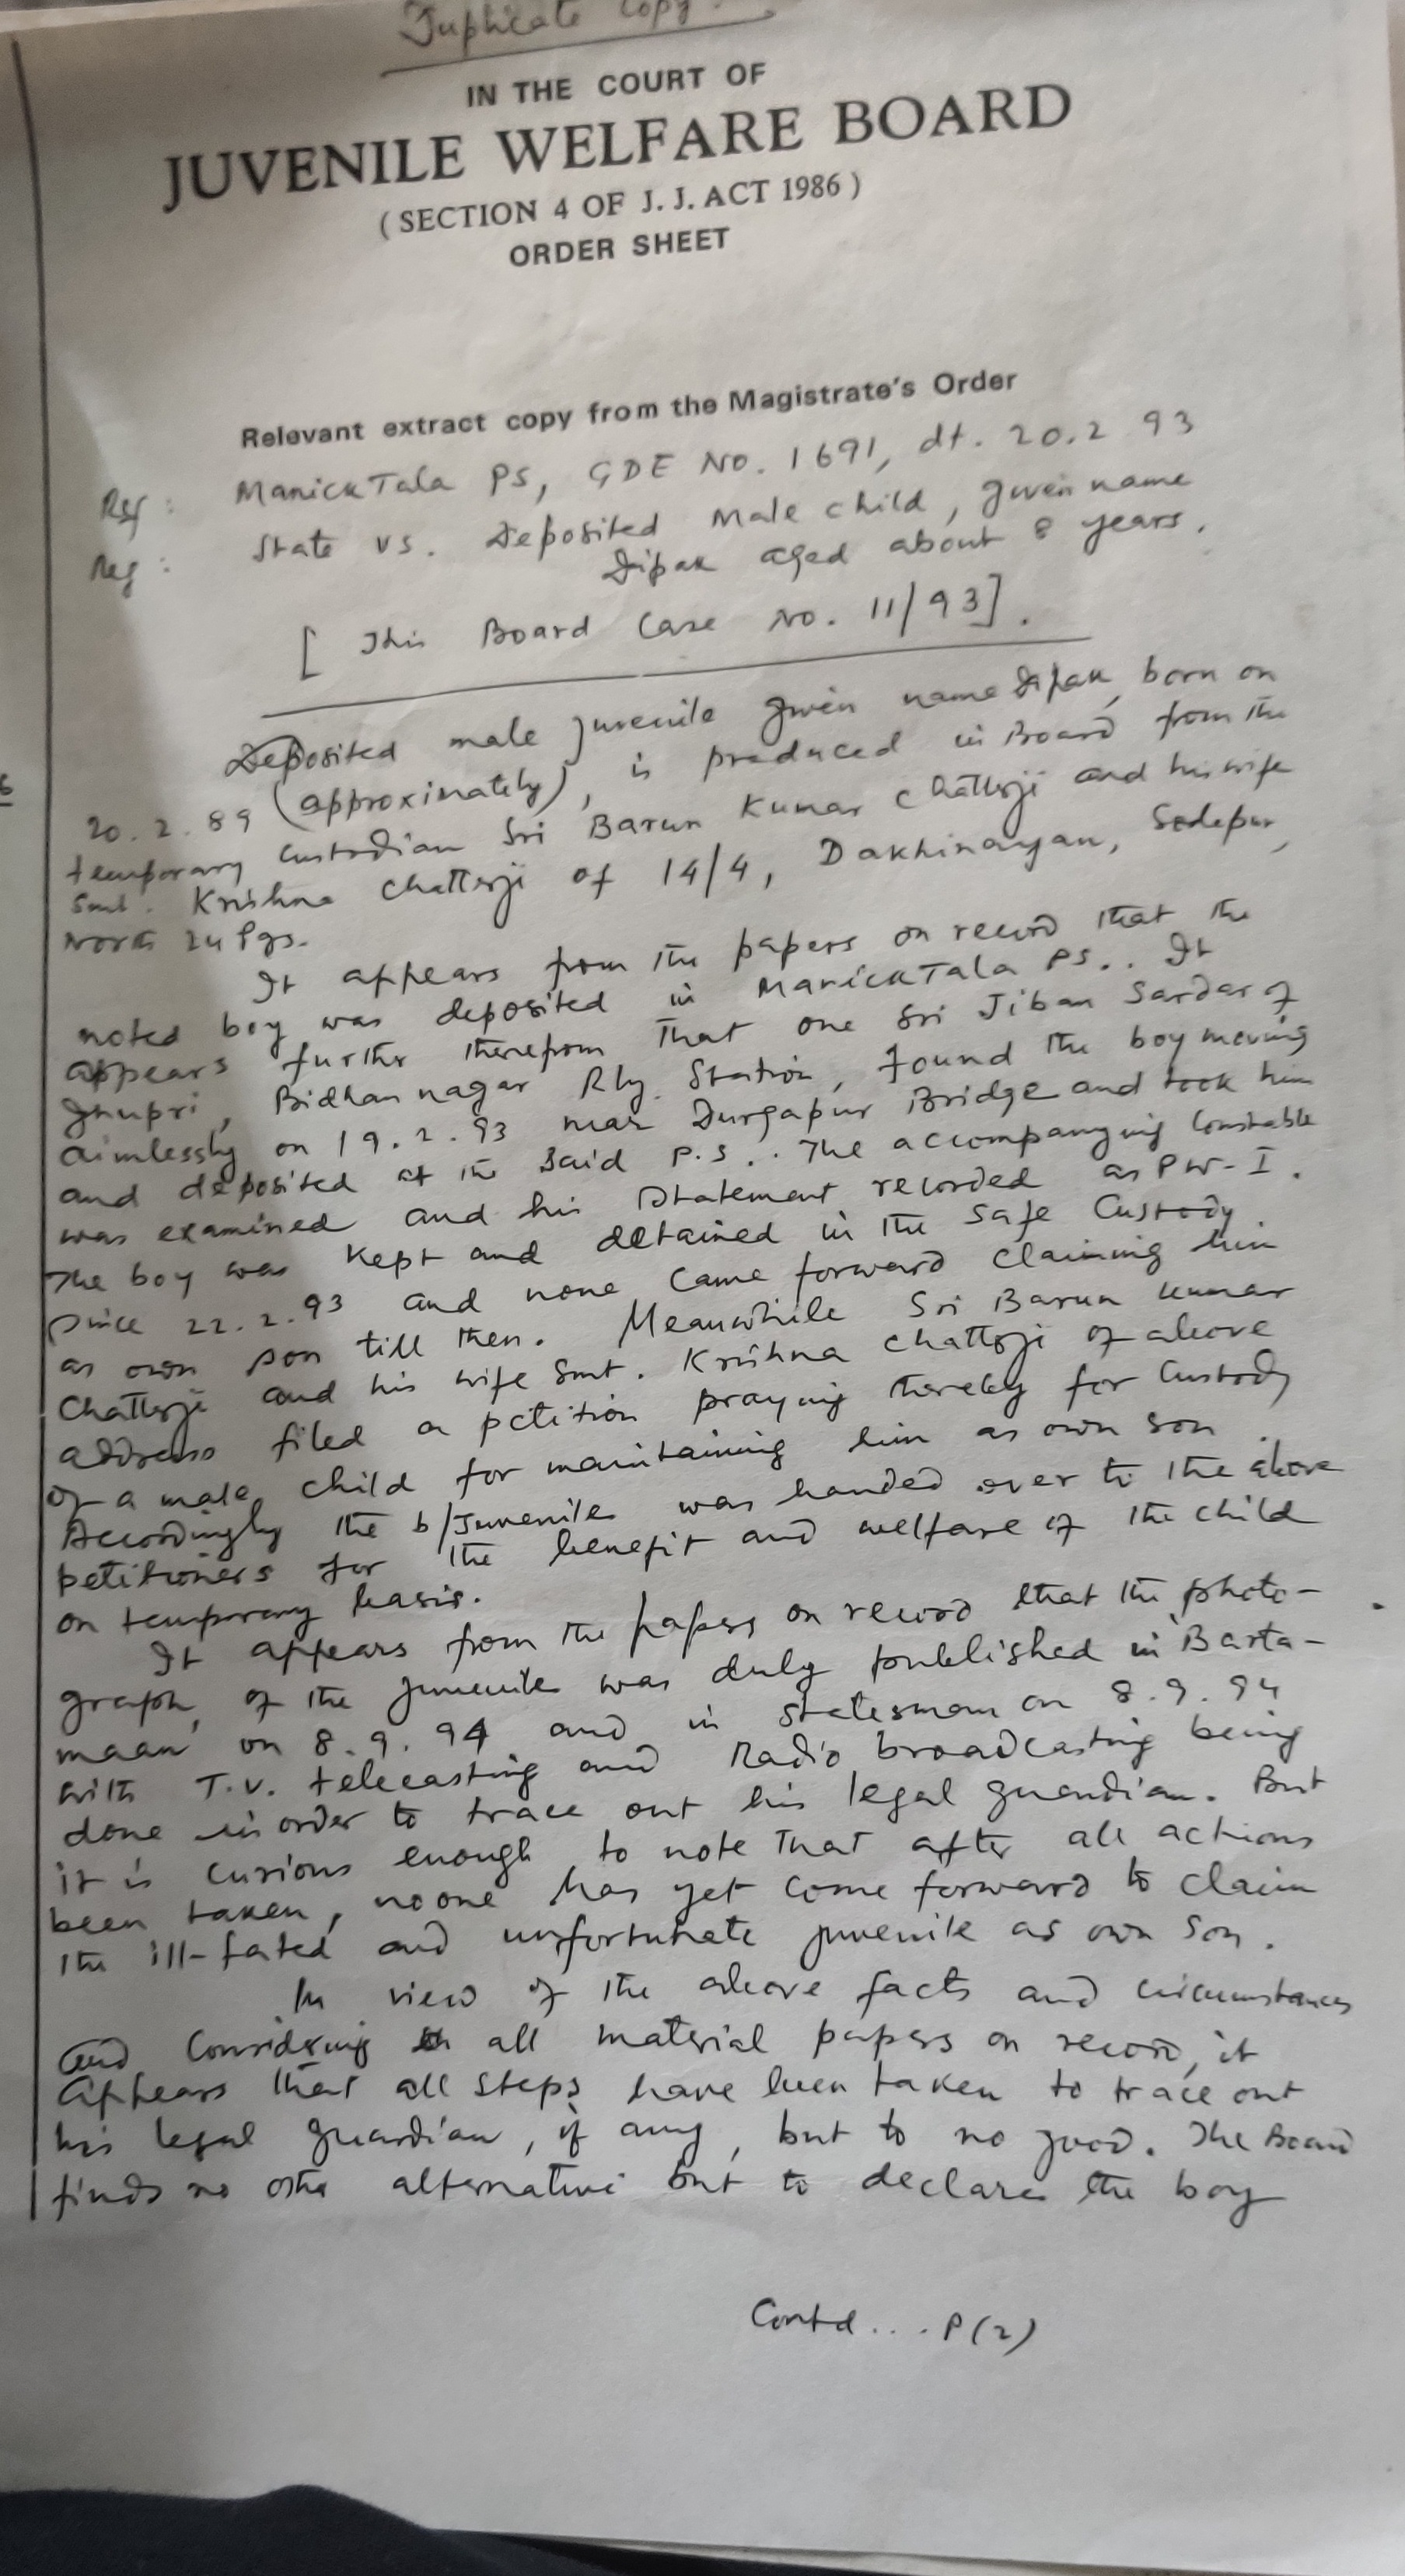 Duplicate Copy.
IN THE COURT OF
JUVENILE WELFARE BOARD
( SECTION 4 OF J. J. ACT 1986 )
ORDER SHEET
Relevant extract copy from the Magistrate's Order
Ref : ManickTala PS, GDE No. 1691, dt. 20.2 93
Reg : State vs. Deposited Male child, given name
Dipak aged about 8 years.
[ This Board Case No. 11/93].
Deposited male juvenile given name Dipak, born on
20.2.89 (approximately), is produced in Board from the
temporary custodian Sri Barun Kumar Chatterji and his wife
Smt. Krishna Chatterji of 14/4, Dakhinayan, Sodepur,
North 24 Pgs.
It appears from the papers on record that the
noted boy was deposited in ManickTala PS.. It
appears further therefrom that one Sri Jiban Sardar of
Jhupri, Bidhannagar Rly. Station, found the boy moving
aimlessly on 19.2.93 near Durgapur Bridge and took him
and deposited at the said P.S.. The accompanying Constable
was examined and his statement recorded as PW-I.
The boy was kept and detained in the safe Custody
since 22.2.93 and none came forward claiming him
as own son till then. Meanwhile Sri Barun Kumar
Chatterji and his wife Smt. Krishna Chatterji of above
address filed a petition praying thereby for Custody
of a male child for maintaining him as own son.
Accordingly the b/Juvenile was handed over to the above
petitioners for the benefit and welfare of the child
on temporary basis.
It appears from the papers on record that the photo-
graph of the juvenile was duly published in 'Barta-
maan' on 8.9.94 and in Statesman on 8.9.94
with T.V. telecasting and Radio broadcasting being
done in order to trace out his legal guardian. But
it is curious enough to note that after all actions
been taken, no one has yet come forward to claim
the ill-fated and unfortunate juvenile as own son.
In view of the above facts and circumstances
and Considering all material papers on record, it
appears that all steps have been taken to trace out
his legal guardian, if any, but to no good. The Board
finds no other alternative but to declare the boy
Contd.... P(2)